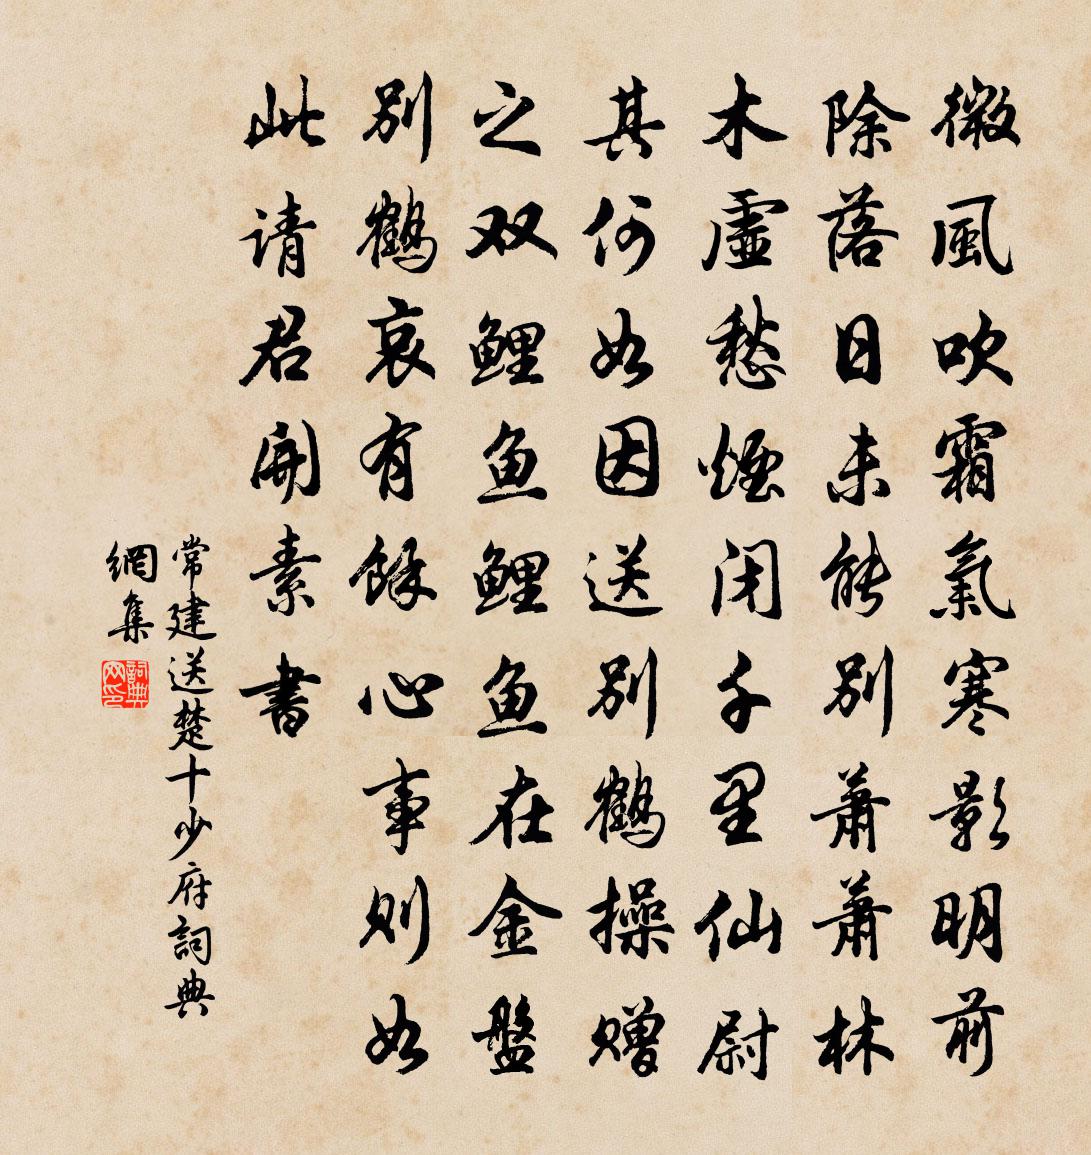 微風吹霜氣寒影明前
除落日未能別蕭蕭林
木虛愁煙闭千里仙尉
其何如因送別鶴操赠
之双鲤鱼鲤鱼在金盤
別鶴哀有餘心事则如
此请君開素書
常建送楚十少府詞典
網集
詞典
网印